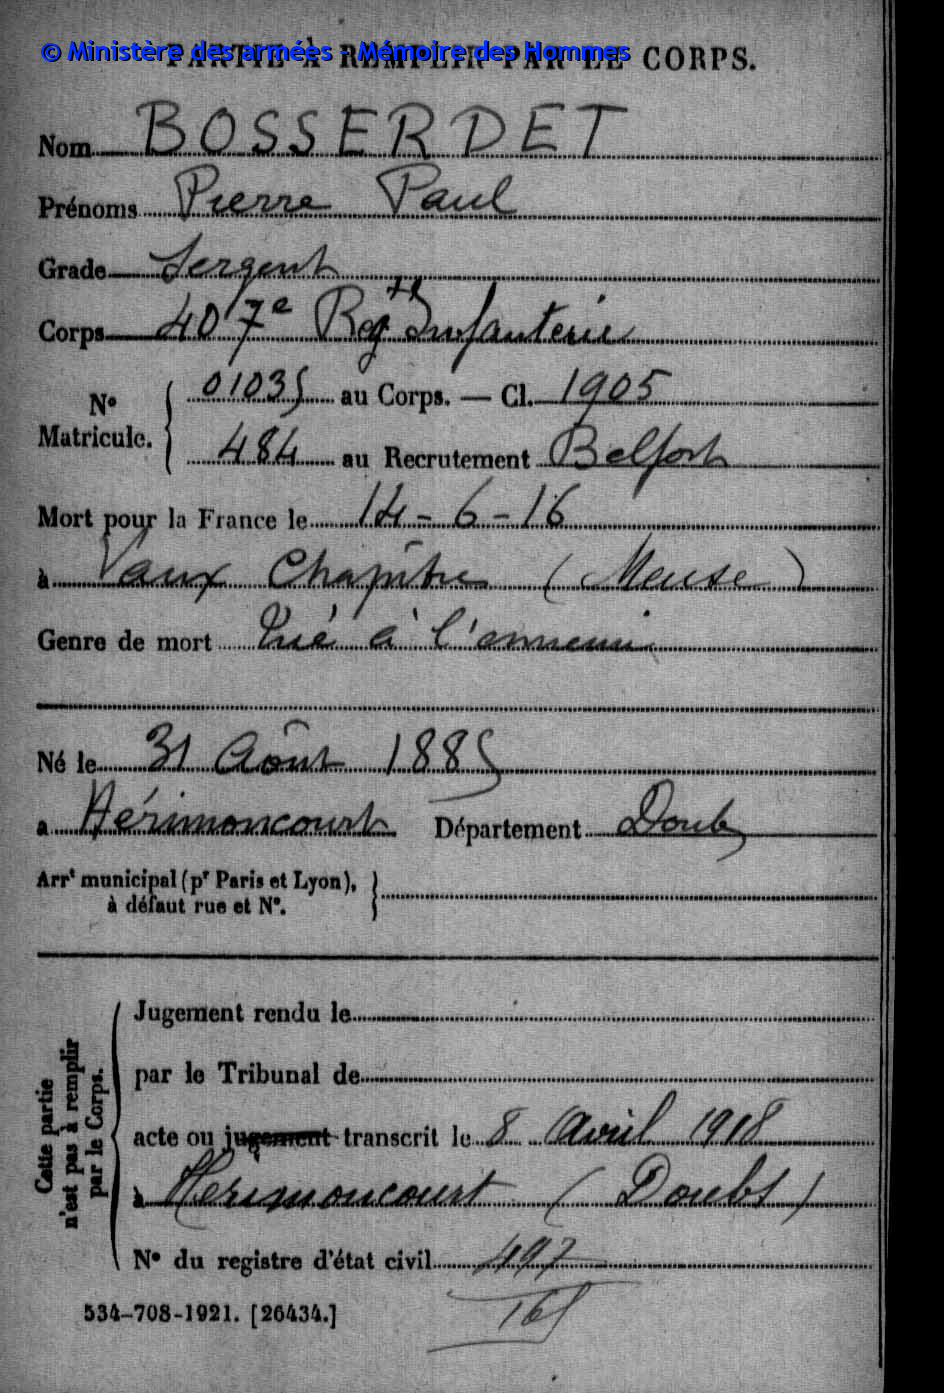 © Ministère des armées - Mémoire des Hommes
PARTIE À REMPLIR PAR LE CORPS.
Nom BOSSERDET
Prénoms Pierre Paul
Grade Sergent
Corps 407e Regt Infanterie
No Matricule. { 01035 au Corps. — Cl. 1905
484 au Recrutement Belfort
Mort pour la France le 14-6-16
à Vaux Chapître (Meuse)
Genre de mort Tué à l'ennemi
Né le 31 Août 1885
a Hérimoncourt Département Doubs
Arrt municipal (pr Paris et Lyon), }
à défaut rue et No.
Cette partie
n'est pas à remplir
par le Corps.
Jugement rendu le
par le Tribunal de
acte ou jugement transcrit le 8 Avril 1918
à Hérimoncourt (Doubs)
No du registre d'état civil 497
165
534-708-1921. [26434.]